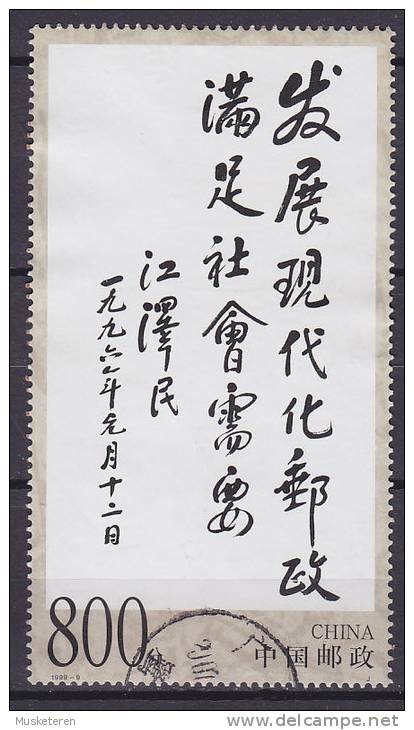 发展现代化郵政
满足社會需要
江澤民
一九九六年元月十二日
800
CHINA
中国邮政
1999-9
J
Musketeren
delcampe.net